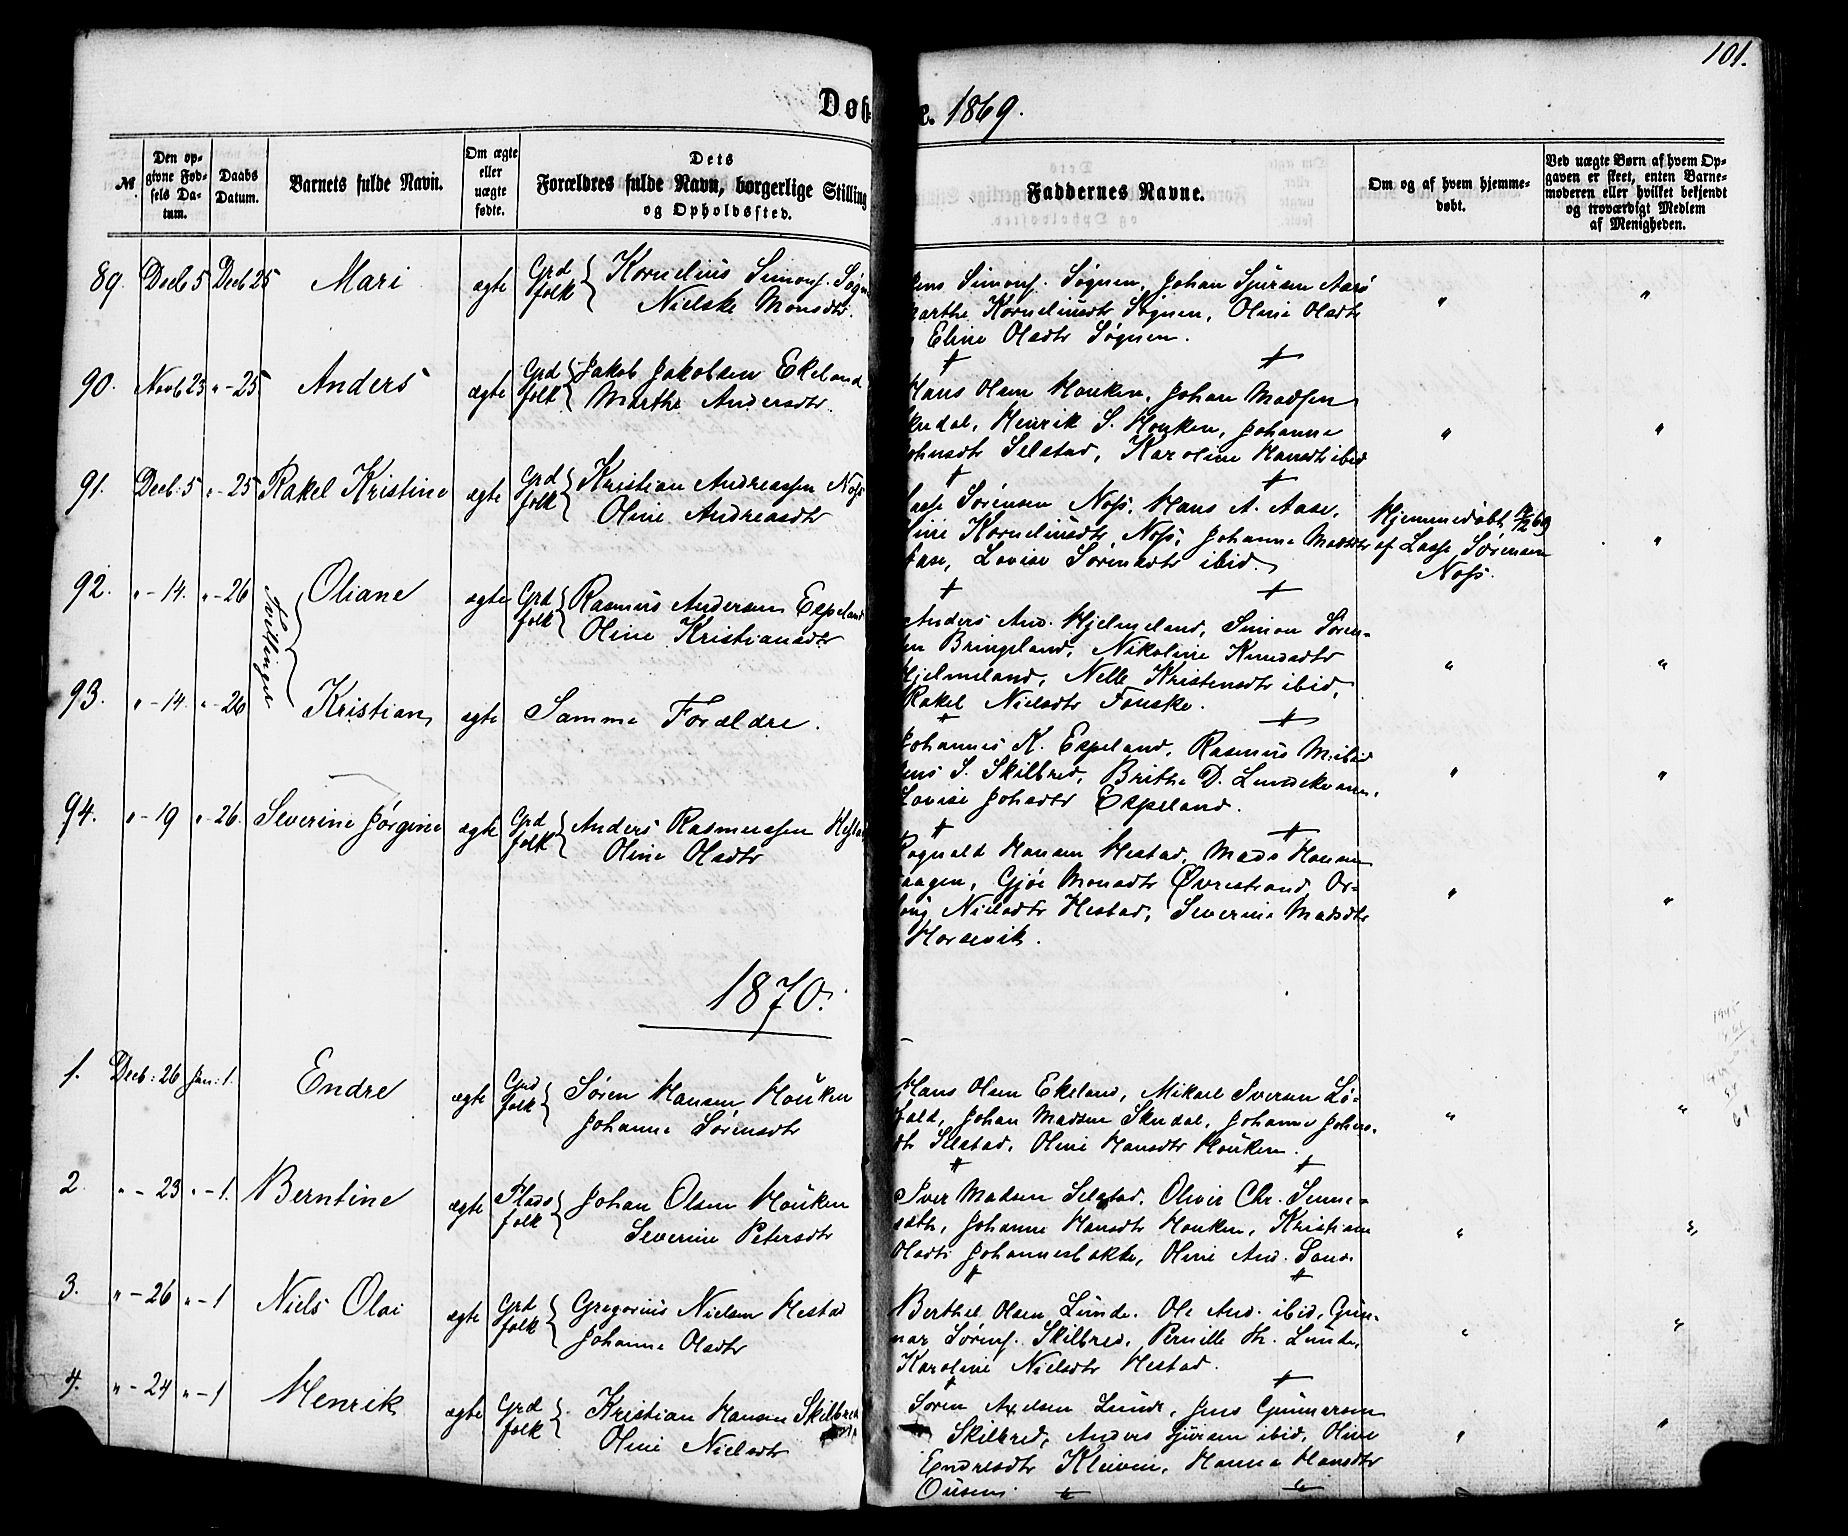 101.
Døb
e. 1869.
№
Den opgivne Fødsels Datum.
Daabs Datum.
Barnets fulde Navn.
Om ægte eller uægte fødte.
Dets Forældres fulde Navn, borgerlige Stilling og Opholdssted.
Faddernes Navne.
Om og af hvem hjemmedøbt.
Ved uægte Børn af hvem Opgaven er skeet, enten Barnemoderen eller hvilket bekjendt og troværdigt Medlem af Menigheden.
89. Decb 5 Decb 25 Mari ægte Grd folk { Kornelius Simons. Søgn
Nielske Monsdtr.
ens Simons. Søgnen, Johan Sjursen Aasø
arthe Korneliusdtr Søgnen, Oline Olsdtr
Eline Olsdtr Søgnen.
90. Novb 23 " - 25. Anders ægte Grd folk { Jakob Jakobsen Ekeland
Marthe Andersdtr.
Hans Olsen Houken, Johan Madsen
kudal, Henrik S. Houken, Johanne
ohnsdtr Selstad, Karoline Hansdtr ibid
91. Decb: 5 " - 25 Rakel Kristine ægte Grd folk { Kristian Andreassen Nofs
Oline Andreasdtr
asse Sørensen Nofs, Hans A. Aase,
line Korneliusdtr Nofs, Johanne Madsdtr
Aase, Lovise Sørensdtr ibid.
Hjemmedøbt 69
af Lasse Sørensen
Nofs.
92. " - 14. " - 26 Tvillinger { Oliane ægte Grd folk { Rasmus Andersen Espeland
Oline Kristiansdtr
Anders And. Hjelmeland, Simon Søren-
en Bringeland, Nikoline Knudsdtr
Hjelmeland, Nelle Kristensdtr ibid,
Rakel Nielsdtr Fauske.
93. " - 14. " - 26 Kristian ægte Samme Forældre.
Johannes K. Espeland, Rasmus M. ibid
ens S. Skilbred, Brithe D. Lundekvam,
Lovise Johsdtr Espeland.
94. " - 19 " - 26. Severine Jørgine ægte Grd folk { Anders Rasmussen Hestad
Oline Olsdtr
Rognald Hansen Hestad, Mads Hansen
aagen, Gjøe Monsdtr Øvrestrand, Or-
Nielsdtr Hestad, Severine Madsdtr
Horsevik.
1870.
1. Decb: 26 Jan: 1. Endre ægte Grd folk { Søren Hansen Houken
Johanne Sørensdtr
Hans Olsen Ekeland, Mikael Iversen Lø-
fald, Johan Madsen Skudal, Johanne Johns-
dtr Selstad, Oline Hansdtr Houken.
2. " - 23 " - 1. Berntine ægte Plads folk { Johan Olsen Houken
Severine Petersdtr
Iver Madsen Selstad, Oliver Chr. Sunne-
sæth, Johanne Hansdtr Houken, Kristiane
Olsdtr Johannesbakke, Oline And. Sand.
3. " - 26 " - 1 Niels Olai ægte Grd folk { Gregorius Nielsen Hestad
Johanne Olsdtr
Berthel Olsen Lunde, Ole And. ibid, Gun-
nar Sørens. Skilbred, Pernille Th. Lunde,
Karoline Nielsdtr Hestad.
4. " - 24 " - 1 Henrik ægte Grd folk { Kristian Hansen Skilbred
Oline Nielsdtr
Søren Axelsen Lunde, Jens Gunnarsen
Skilbred, Anders Sjursen ibid, Oline
Endresdtr Kleiven, Hanna Hansdtr
Ousen.